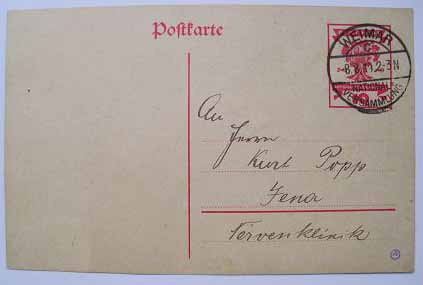 Postkarte
WEIMAR
C
8.8.19.2-3N
NATIONAL
VERSAMMLUNG
An
Herrn
Kurt Popp
Jena
Nervenklinik